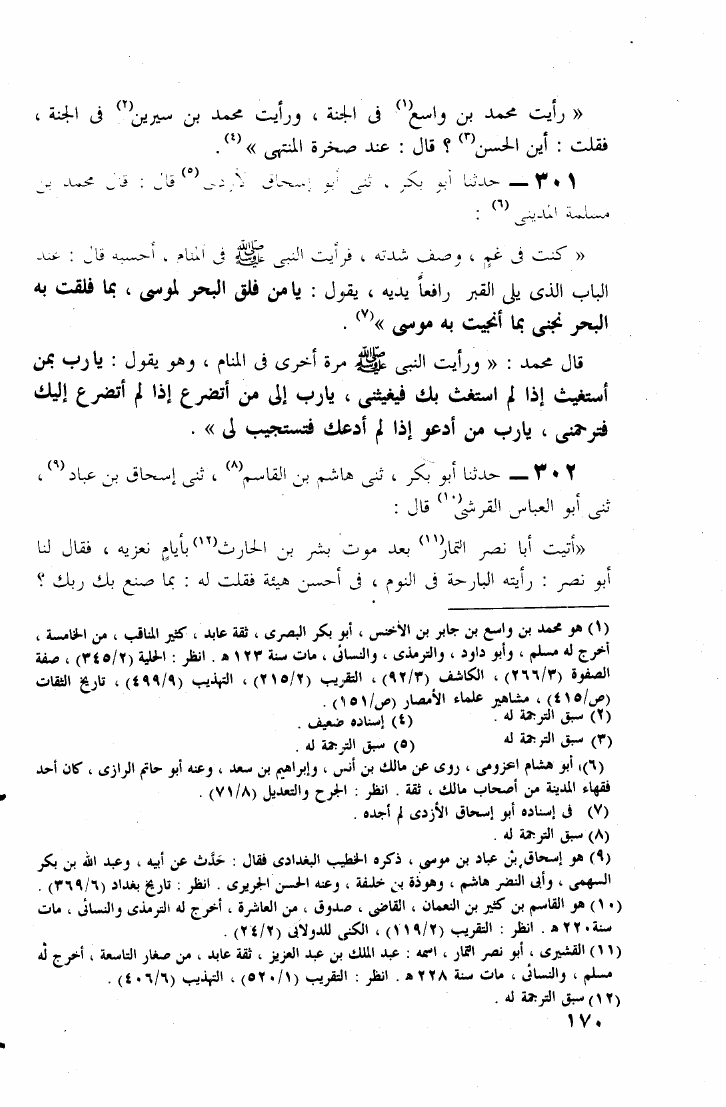 « رأيت محمد بن واسع(١) فى الجنة ، ورأيت محمد بن سيرين(٢) فى الجنة ،
فقلت : أين الحسن(٣) ؟ قال : عند صخرة المنتهى »(٤) .
٣٠١ ــ حدثنا أبو بكر ، ثنى أبو إسحاق الأزدى(٥) قال : قال محمد بن
مسلمة المدينى(٦) :
« كنت فى غمٍ ، وصف شدته ، فرأيت النبى ﷺ فى المنام . أحسبه قال : عند
الباب الذى يلى القبر رافعاً يديه ، يقول : يامن فلق البحر لموسى ، بما فلقت به
البحر نجنى بما أنجيت به موسى »(٧) .
قال محمد : « ورأيت النبى ﷺ مرة أخرى فى المنام ، وهو يقول : يارب بمن
أستغيث إذا لم استغث بك فيغيثنى ، يارب إلى من أتضرع إذا لم أتضرع إليك
فترحمنى ، يارب من أدعو إذا لم أدعك فتستجيب لى » .
٣٠٢ ــ حدثنا أبو بكر ، ثنى هاشم بن القاسم(٨) ، ثنى إسحاق بن عباد(٩) ،
ثنى أبو العباس القرشى(١٠) قال :
«أتيت أبا نصر التمار(١١) بعد موت بشر بن الحارث(١٢) بأيامٍ نعزيه ، فقال لنا
أبو نصر : رأيته البارحة فى النوم ، فى أحسن هيئة فقلت له : بما صنع بك ربك ؟
(١) هو محمد بن واسع بن جابر بن الأخنس ، أبو بكر البصرى ، ثقة عابد ، كثير المناقب ، من الخامسة ،
أخرج له مسلم ، وأبو داود ، والترمذى ، والنسائى ، مات سنة ١٢٣ هـ . انظر : الحلية (٣٤٥/٢) ، صفة
الصفوة (٢٦٦/٣) ، الكاشف (٩٢/٣) ، التقريب (٢١٥/٢) ، التهذيب (٤٩٩/٩) ، تاريخ الثقات
(ص/٤١٥) ، مشاهير علماء الأمصار (ص/١٥١) .
(٢) سبق الترجمة له . (٤) إسناده ضعيف .
(٣) سبق الترجمة له (٥) سبق الترجمة له .
(٦) ، أبو هشام اعزومى ، روى عن مالك بن أنس ، وإبراهيم بن سعد ، وعنه أبو حاتم الرازى ، كان أحد
فقهاء المدينة من أصحاب مالك ، ثقة . انظر : الجرح والتعديل (٧١/٨) .
(٧) فى إسناده أبو إسحاق الأزدى لم أجده .
(٨) سبق الترجمة له .
(٩) هو إسحاق بن عباد بن موسى ، ذكره الخطيب البغدادى فقال : حَدَّث عن أبيه ، وعبد الله بن بكر
السهمى ، وأبى النضر هاشم ، وهوذة بن خليفة ، وعنه الحسن الجريرى . انظر : تاريخ بغداد (٣٦٩/٦) .
(١٠) هو القاسم بن كثير بن النعمان ، القاضى ، صدوق ، من العاشرة ، أخرج له الترمذى والنسائى ، مات
سنة ٢٢٠ هـ . انظر : التقريب (١١٩/٢) ، الكنى للدولابى (٢٤/٢) .
(١١) القشيرى ، أبو نصر التمار ، اسمه : عبد الملك بن عبد العزيز ، ثقة عابد ، من صغار التاسعة ، أخرج له
مسلم ، والنسائى ، مات سنة ٢٢٨ هـ . انظر : التقريب (٥٢٠/١) ، التهذيب (٤٠٦/٦) .
(١٢) سبق الترجمة له .
١٧٠